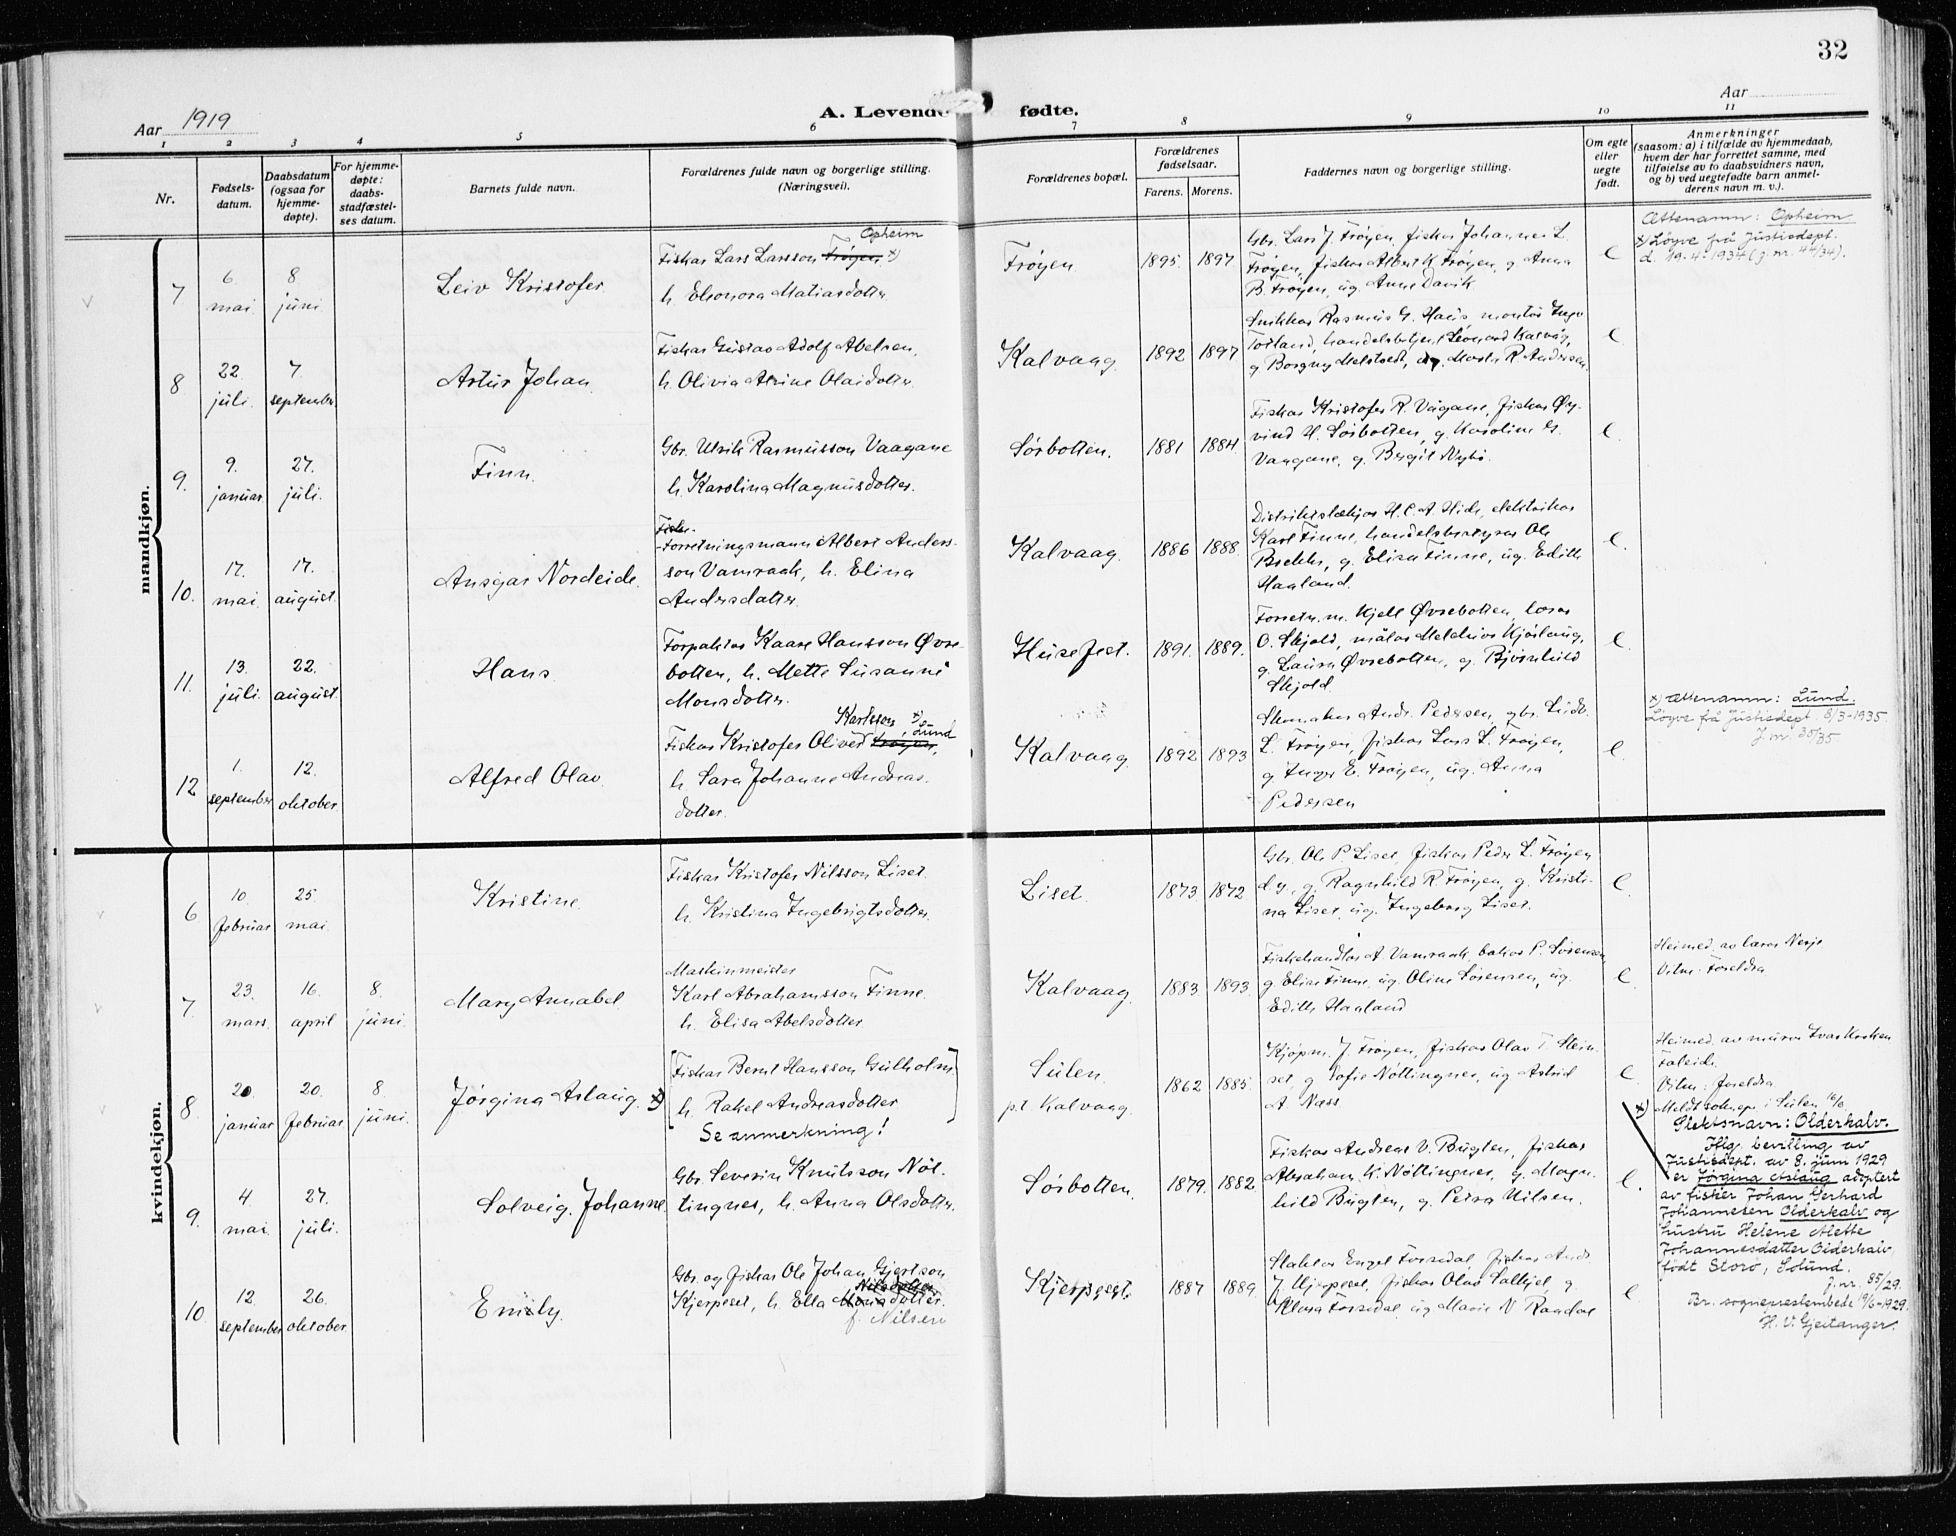 32
Aar 1919
A. Levende fødte.
Aar
1 2 3 4 5 6 7 8 9 10 11
Nr.
Fødsels-
datum.
Daabsdatum
(ogsaa for
hjemme-
døpte).
For hjemme-
døpte:
daabs-
stadfæstel-
ses datum.
Barnets fulde navn.
Forældrenes fulde navn og borgerlige stilling.
(Næringsvei).
Forældrenes bopæl.
Forældrenes
fødselsaar.
Farens. Morens.
Faddernes navn og borgerlige stilling.
Om egte
eller
uegte
født.
Anmerkninger
(saasom: a) i tilfælde av hjemmedaab,
hvem der har forrettet samme, med
tilføielse av to daabsvidners navn,
og b) ved uegtefødte barn anmel-
derens navn m. v.).
mandkjøn.
7
6
mai.
8
juni
Leiv Kristofer
Opheim
Fiskar Lars Larsson Frøyen x)
h. Elsonora Matiasdotter
Frøyen
1895. 1897
Gbr. Lars J. Frøyen, fiskar Johannes L.
Frøyen, fiskar Albert K. Frøyen, g. Anna
B. Frøyen, ug. Anne Davik
e
Ættenamn: Opheim
x) Løyve frå Justisdept.
d. 19.4.1934 (j. nr. 44/34).
8
22.
juli.
7.
september.
Artur Johan
Fiskar Gustav Adolf Abelsen,
h. Olivia Alrine Olaidotter
Kalvaag.
1892 1897
Snikkar Rasmus G. Haus montør Ingv.
Torland, handelsbetjent Leonard Kalvåg,
g Borgny Melstvedt, ug. Marta R Andersen.
e
9.
9.
januar.
27.
juli.
Finn.
Gbr. Ulrik Rasmusson Vaagane
h. Karolina Magnusdotter.
Sørbotten.
1881 1884.
Fiskar Kristofer R. Vågane, fiskar Øy-
vind H. Sørbotten, g. Karoline G.
Vaagane, g. Bergit Nybø.
e.
10.
17.
mai.
17.
august.
Ansgar Nordeide.
Fisk.
Forretningsmann Albert Anders-
son Vamraak, h. Elina
Andersdatter.
Kalvaag.
1886 1888.
Distriktslækjar H. C. A. Hide, elektrikar
Karl Finne, handelsbestyrer Ole
Brekke, g. Elisa Finne, ug. Edith
Haaland.
e.
11.
13.
juli.
22.
august.
Hans
Forpaktar Kaare Hansson Øvre-
botten, h. Mette Susanne
Monsdotter.
Husefest.
1891. 1889.
Forretn. m. Kjell Øvrebotten, lærar
O. Skjold, målar Melchior Kjørlaug,
g. Laura Øvrebotten, g. Bjørnhild
Skjold.
e.
12
1.
september
12.
oktober.
Alfred Olav.
Karlsson, x) Lund
Fiskar Kristofer Oliver Frøyen,
h. Sara Johanne Andreas-
dotter.
Kalvaag.
1892 1893
Skomakar Andr. Pedersen, gbr. Ludv.
L. Frøyen, fiskar Lars L. Frøyen,
g Inger E. Frøyen, ug. Anna
Pedersen
e.
x) Ættenamn: Lund.
Løyve frå Justisdept. 8/3-1935
J. nr. 35/35
kvindekjøn.
6
10.
februar
25.
mai
Kristine.
Fiskar Kristofer Nilsson Liset.
h. Kristina Ingebrigtsdotter.
Liset.
1873. 1872
Gbr. Ole P. Liset, fiskar Peder L. Frøyen
d.y., g. Ragnhild R. Frøyen, g. Kristi-
na Liset, ug. Ingeborg Liset.
e.
7.
23.
mars.
16.
april
8.
juni.
Mary Annabel.
Maskinmeister
Karl Abrahamsson Finne.
h. Elisa Abelsdotter.
Kalvaag.
1883. 1893.
Fiskehandlar A Vamraak, bakar P. Sørensen,
g. Elin Finne, ug. Oline Sørensen, ug.
Edith Haaland
e.
Heimed. av lærar Nesje
Vitne: Foreldra
8.
20.
januar
20.
februar
8
juni.
Jørgina Aslaug. x)
[Fiskar Bernt Hansson Gulholm
h. Rakel Andreasdotter]
Se anmerkning!
Sulen.
p.t. Kalvaag.
1862 1885.
Kjøpm. J. Frøyen, fiskar Olav T. Stein-
set, g Sofie Nøttingnes, ug Astrid
A. Næss
e.
Heimed. av murar Ivar Kroken
Faleide.
Vitne: foreldra
Meldt soknepr. i Sulen 16/6.
x) Slektsnavn: Olderkalv.
Iflg. bevilling av
Justisdept. av 8. juni 1929
er Jørgina Aslaug adoptert
av fisker Johan Gerhard
Johannesen Olderkalv og
hustru Helene Alette
Johannesdatter Olderkalv,
født Storø, Solund.
J. nr. 85/29.
Br. sogneprestembede 19/6-1929.
H. V. Gjeitanger.
9.
4
mai.
27.
juli.
Solveig. Johanne.
Gbr. Severin Knutsson Nøt-
tingnes, h. Anna Olsdotter.
Sørbotten.
1879. 1882.
Fiskar Andreas V. Bugten, fiskar
Abraham K. Nøttingnes, g. Magn-
hild Bugten, g. Petra Nilsen.
e.
10.
12.
september
26.
oktober.
Emily.
Gbr. og fiskar Ole Johan Gjertson
Nilsdotter
Kjerpeset, h. Ella Monsdotter.
f. Nilsen
Kjerpeset.
1887 1889.
Slaktar Engel Førsdal, fiskar Andr.
J. Kjerpeset, fiskar Olav Salkjel, g
Klara Førsdal, ug Marie N Raadal
e.